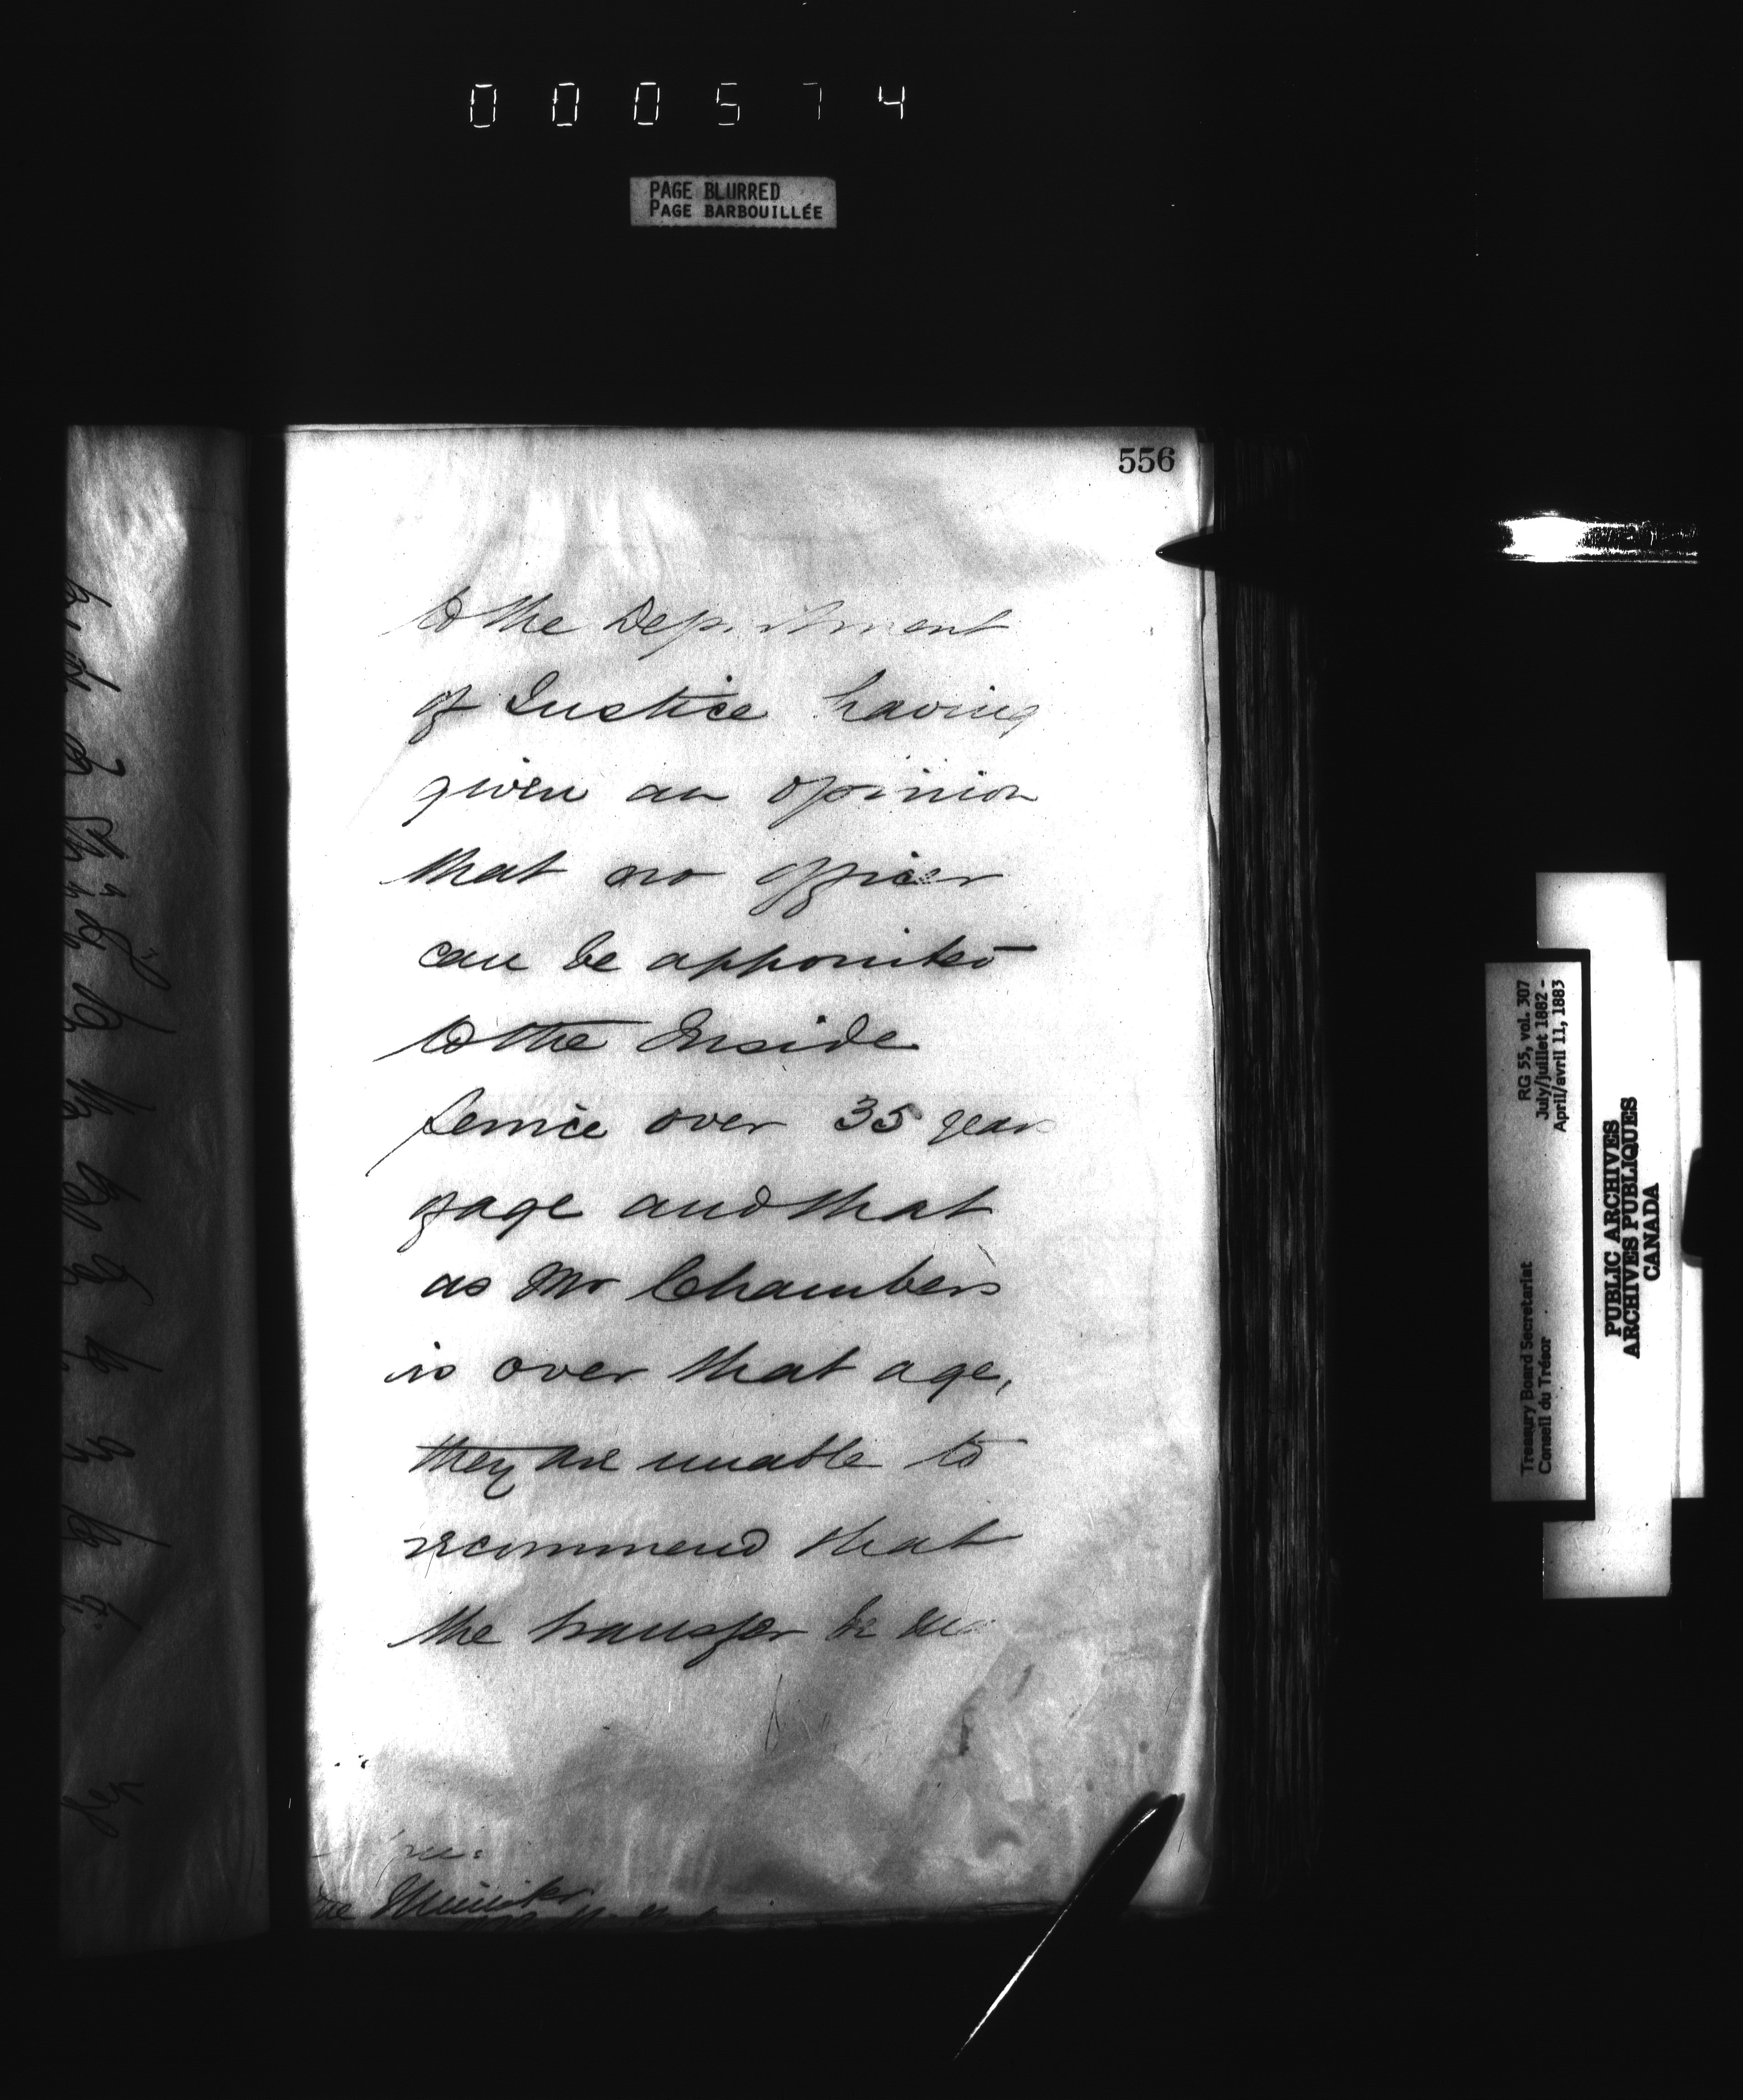 000574
PAGE BLURRED
PAGE BARBOUILLÉE
556
to the Department
of Justice having
given an opinion
that no officer
can be appointed
to the Inside
Service over 35 years
of age and that
as Mr Chambers
is over that age,
they are unable to
recommend that
the transfer be
The Minister
RG 55, vol. 307
July/juillet 1882 -
April/avril 11, 1883
Treasury Board Secretariat
Conseil du Trésor
PUBLIC ARCHIVES
ARCHIVES PUBLIQUES
CANADA